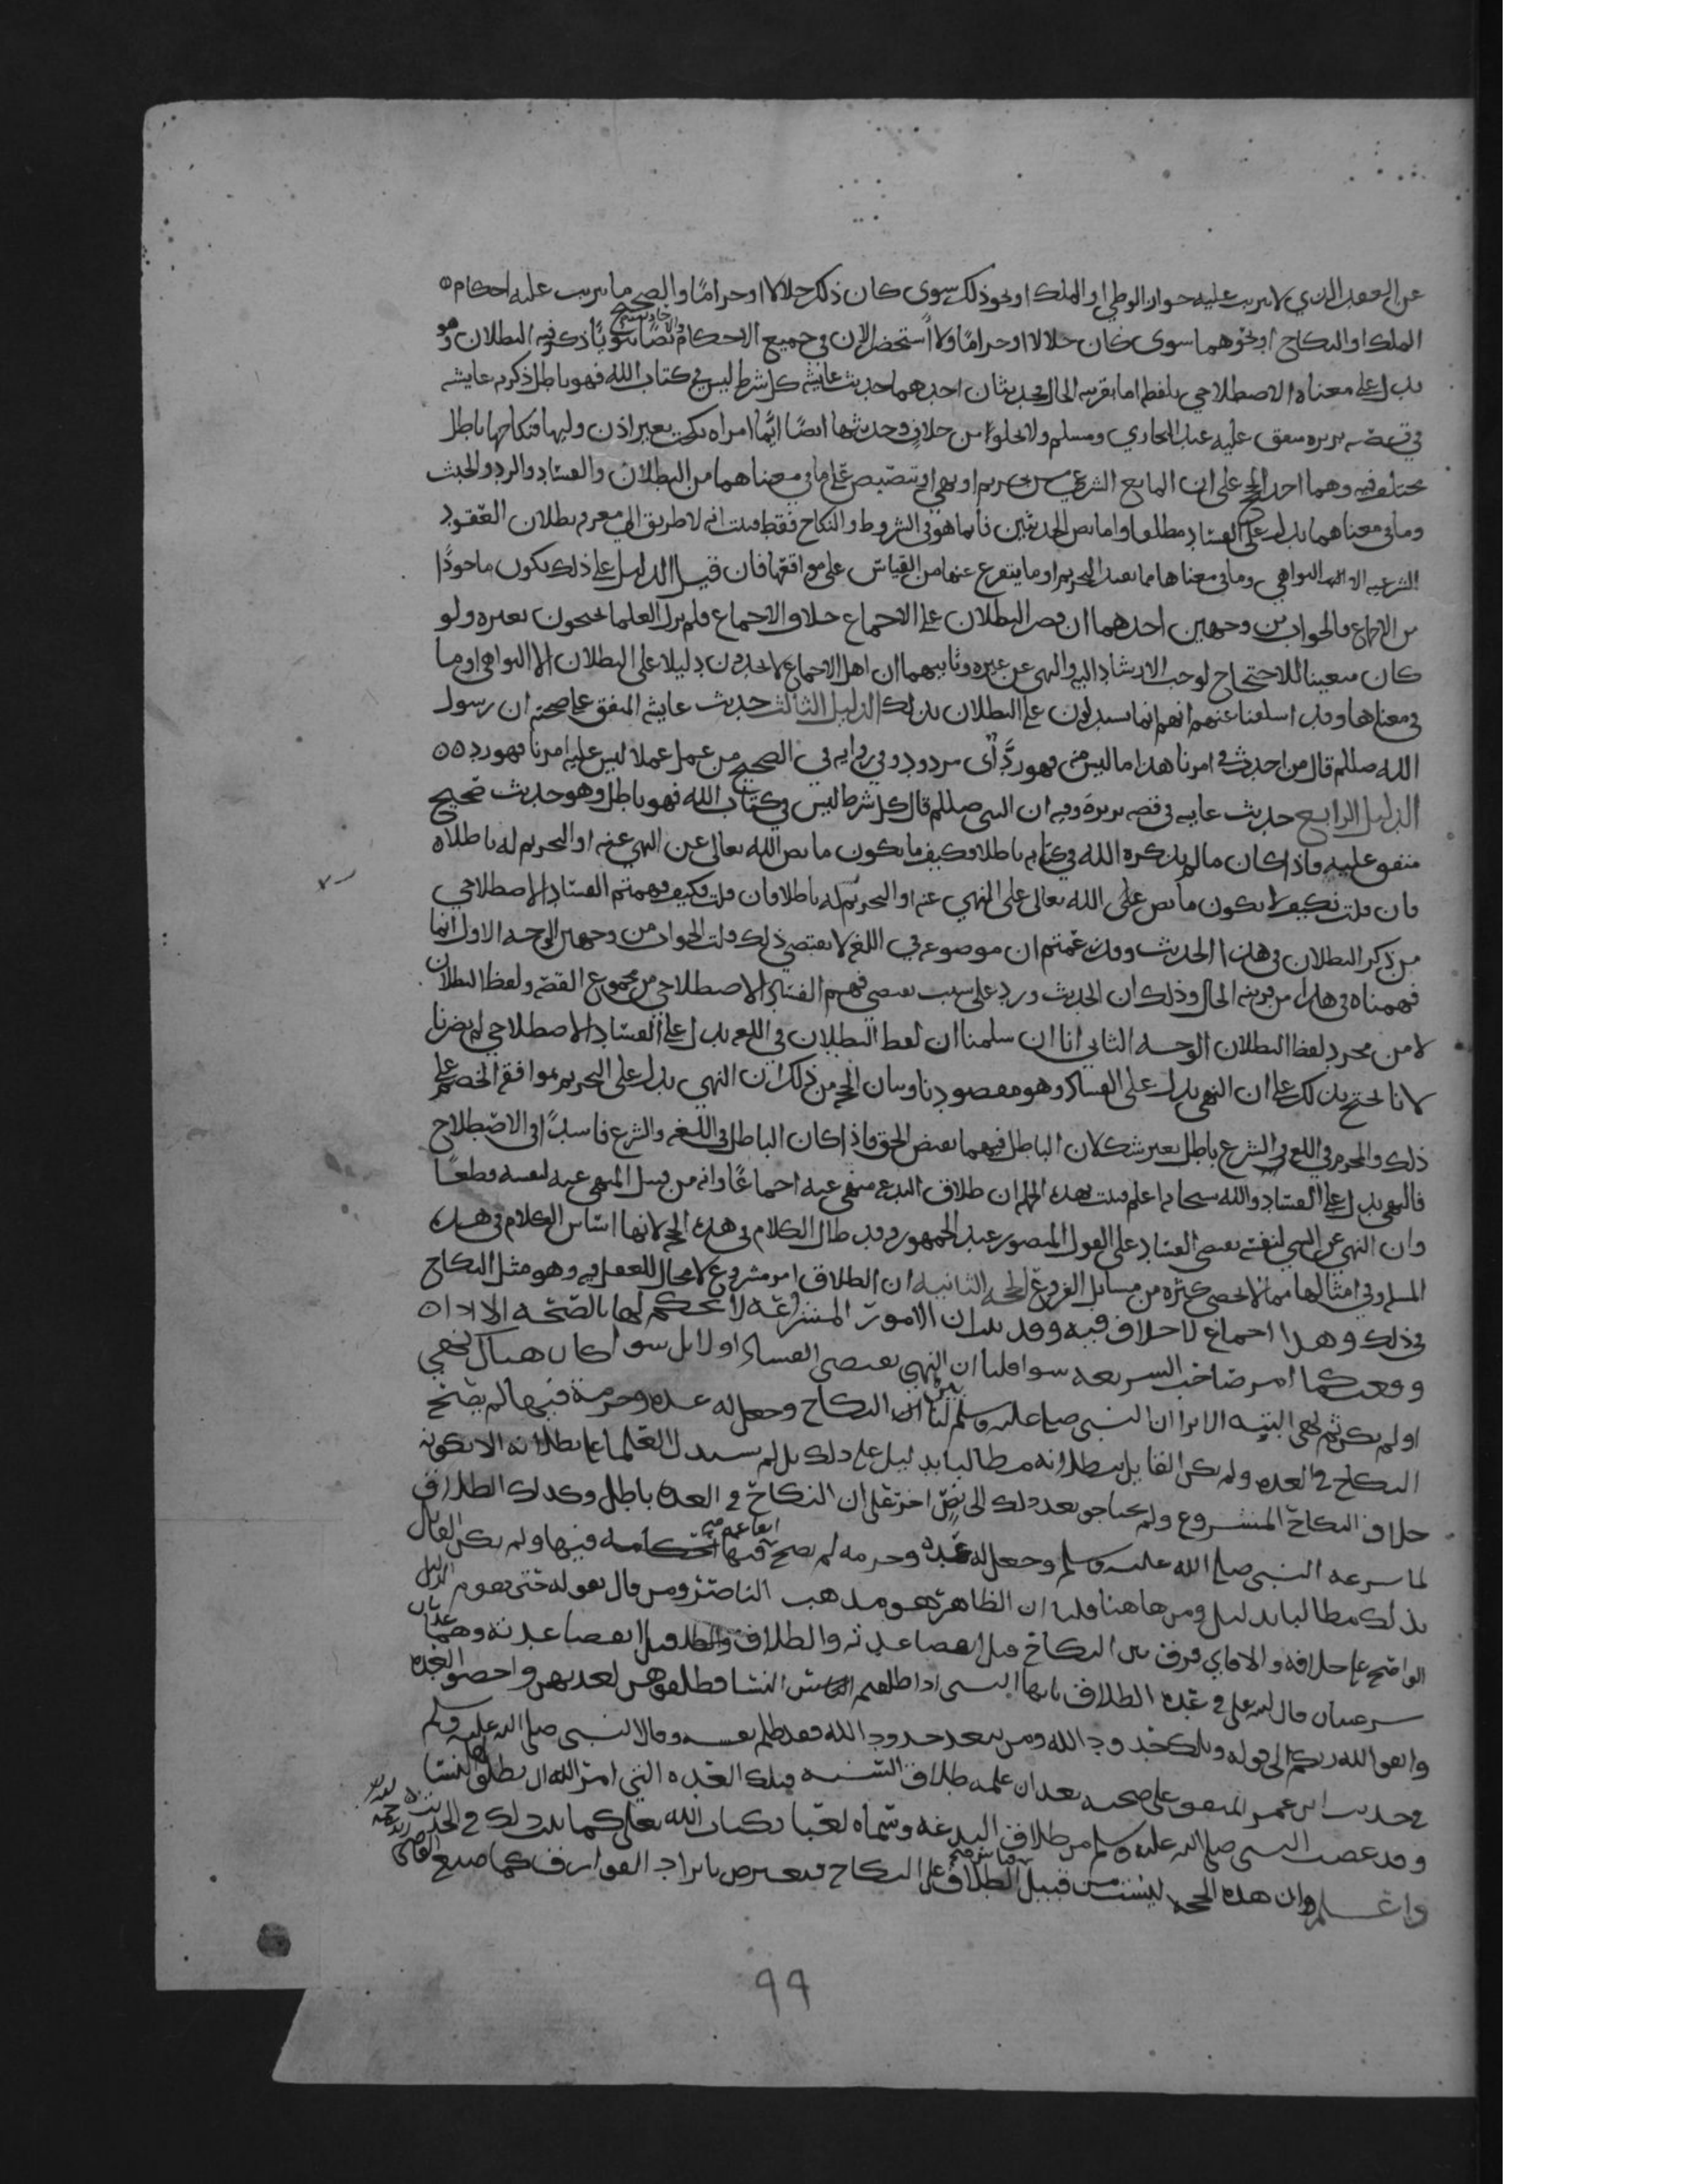 عن العقد الذي لا يترتب عليه جواز الوطي او الملك او نحو ذلك سوى كان ذلك حلالا او حراما والصحيح ما يترتب عليه احكام
الملك او النكاح او نحوهما سوى كان حلالا او حراما ولا استحضر الان في جميع الاحكام نصا نبويا ذكر فيه البطلان وهو
يدل على معناه الاصطلاحي بلفظه اما بقرينه الحال حديثان احدهما حديث عايشه كل شرط ليس في كتاب الله فهو باطل ذكره عايشه
في قصة بريره متفق عليه عند البخاري ومسلم ولا يخلوا من خلاف وحديثها ايضا ايما امراه نكحت بغير اذن وليها فنكاحها باطل
مختلف فيه وهما احد الحجج على ان المانع الشرعي من تحريم او نهي او تنصيص على ما في معناهما من البطلان والفساد والرد والخبث
وما في معناهما يدل على الفساد مطلقا واما نص الحديثين فانما هو في الشروط والنكاح فقط فثبت انه لا طريق الى معرفه بطلان العقود
الشرعيه الا النواهي وما في معناها مما يفيد التحريم او ما يتفرع عنها من القياس على موافقتها فان قيل الدليل على ذلك يكون ماخوذا
من الاجماع فالجواب من وجهين احدهما ان قصر البطلان على الاجماع خلاف الاجماع فلم يزل العلما يحتجون بغيره ولو
كان متعينا للاحتجاج لوجب الارشاد اليه والنهي عن غيره وثانيهما ان اهل الاجماع لا يجدون دليلا على البطلان الا النواهي او ما
في معناها وقد اسلفنا عنهم انهم انما يستدلون على البطلان بذلك الدليل الثالث حديث عايشه المتفق على صحته ان رسول
الله صللم قال من احدث في امرنا هذا ما ليس منه فهو رد اي مردود وفي روايه في الصحيح من عمل عملا ليس عليه امرنا فهو رد
الدليل الرابع حديث عايشه في قصه بريرة وفيه ان النبي صللم قال كل شرط ليس في كتاب الله فهو باطل وهو حديث صحيح
متفق عليه فاذا كان ما لم يذكره الله في كتابه باطلا فكيف ما يكون ما نص الله تعالى عن النهي عنه او التحريم له باطلا
فان قلت فكيف لا يكون ما نص على الله تعالى على النهي عنه او التحريم له باطلا فان قلت فكيف فهمتم الفساد الاصطلاحي
من ذكر البطلان في هذا الحديث وقد زعمتم ان موضوعه في اللغه لا يقتضي ذلك قلت الجواب من وجهين الوجه الاول انما
فهمناه في هذا من قرينه الحال وذلك ان الحديث ورد على سبب يقتضي فهم الفساد الاصطلاحي من مجموع القصه ولفظ البطلان
لا من مجرد لفظ البطلان الوجه الثاني انا ان سلمنا ان لفظ البطلان في اللغه يدل على الفساد الاصطلاحي لم يضرنا
لانا نحتج بذلك على ان النهي يدل على الفساد وهو مقصودنا وبيان الحجه من ذلك ان النهي يدل على التحريم بموافقه الخصم على
ذلك والمحرم في اللغه في الشرع باطل بغير شك لان الباطل فيهما نقيض الحق فاذا كان الباطل في اللغه والشرع فاسدا في الاصطلاح
فالنهي يدل على الفساد والله سبحانه اعلم فثبت بهذه الجمله ان طلاق البدعه منهي عنه اجماعا وانه من قبيل المنهي عنه لنفسه قطعا
وان النهي عن الشي لنفسه يقتضي الفساد على القول المنصور عند الجمهور وقد طال الكلام في هذه الحجه لانها اساس الكلام في هذه
المسله وفي امثالها مما لا يحصى كثره من مسايل الفروع الحجه الثانيه ان الطلاق امر مشروع لا مجال للعقل فيه وهو مثل النكاح
في ذلك وهذا اجماع لا خلاف فيه وقد ثبت ان الامور المشترعه لا يحكم لها بالصحه الا اذا
وقعت كما امر صاحب الشريعه سوا قلنا ان النهي يقتضي الفساد او لا بل سوا كان هناك نهي
او لم يكن ثم نهي البته الا ترا ان النبي صلى عليه وسلم لما بين لنا النكاح وجعل له عده وحرمة فيها لم يصح
النكاح في العده ولم يكن القايل ببطلانه مطالبا بدليل على ذلك بل لم يستدل العلما على بطلانه الا بكونه
خلاف النكاح المشروع ولم يحتاجو بعد ذلك الى نص اخر على ان النكاح في العده باطل وكذلك الطلاق
لما شرعه النبي صلى الله عليه وسلم وجعل له عده وحرمه لم يصح فيها ولم يكن القايل
بذلك مطالبا بدليل ومن هاهنا قلنا ان الظاهر هو مذهب الناصر ومن قال بقوله حتى يقوم الدليل
الواضح على خلافه والا فاي فرق بين النكاح قبل انقضا عدته والطلاق قبل انقضا عدته وهما عدتان
شرعيتان قال الله تعلى في عده الطلاق يايها النبي اذا طلقتم النسا فطلقوهن لعدتهن واحصو العده
واتقو الله ربكم الى قوله وتلك حدود الله ومن يتعد حدود الله فقد ظلم نفسه وقال النبي صلى الله عليه وسلم
في حديث ابن عمر المتفق على صحته بعد ان علمه طلاق السنه فتلك العده التي امر الله ان يطلق لها النسا
وقد غضب النبي صلى الله عليه وسلم من طلاق البدعه وسماه لعبا بكتاب الله تعلى كما ثبت ذلك في الحديث
واعلم ان هذه الحجه ليست من قبيل قياس الطلاق على النكاح فيعترض بايراد الفوارق كما صنع القاضي
99